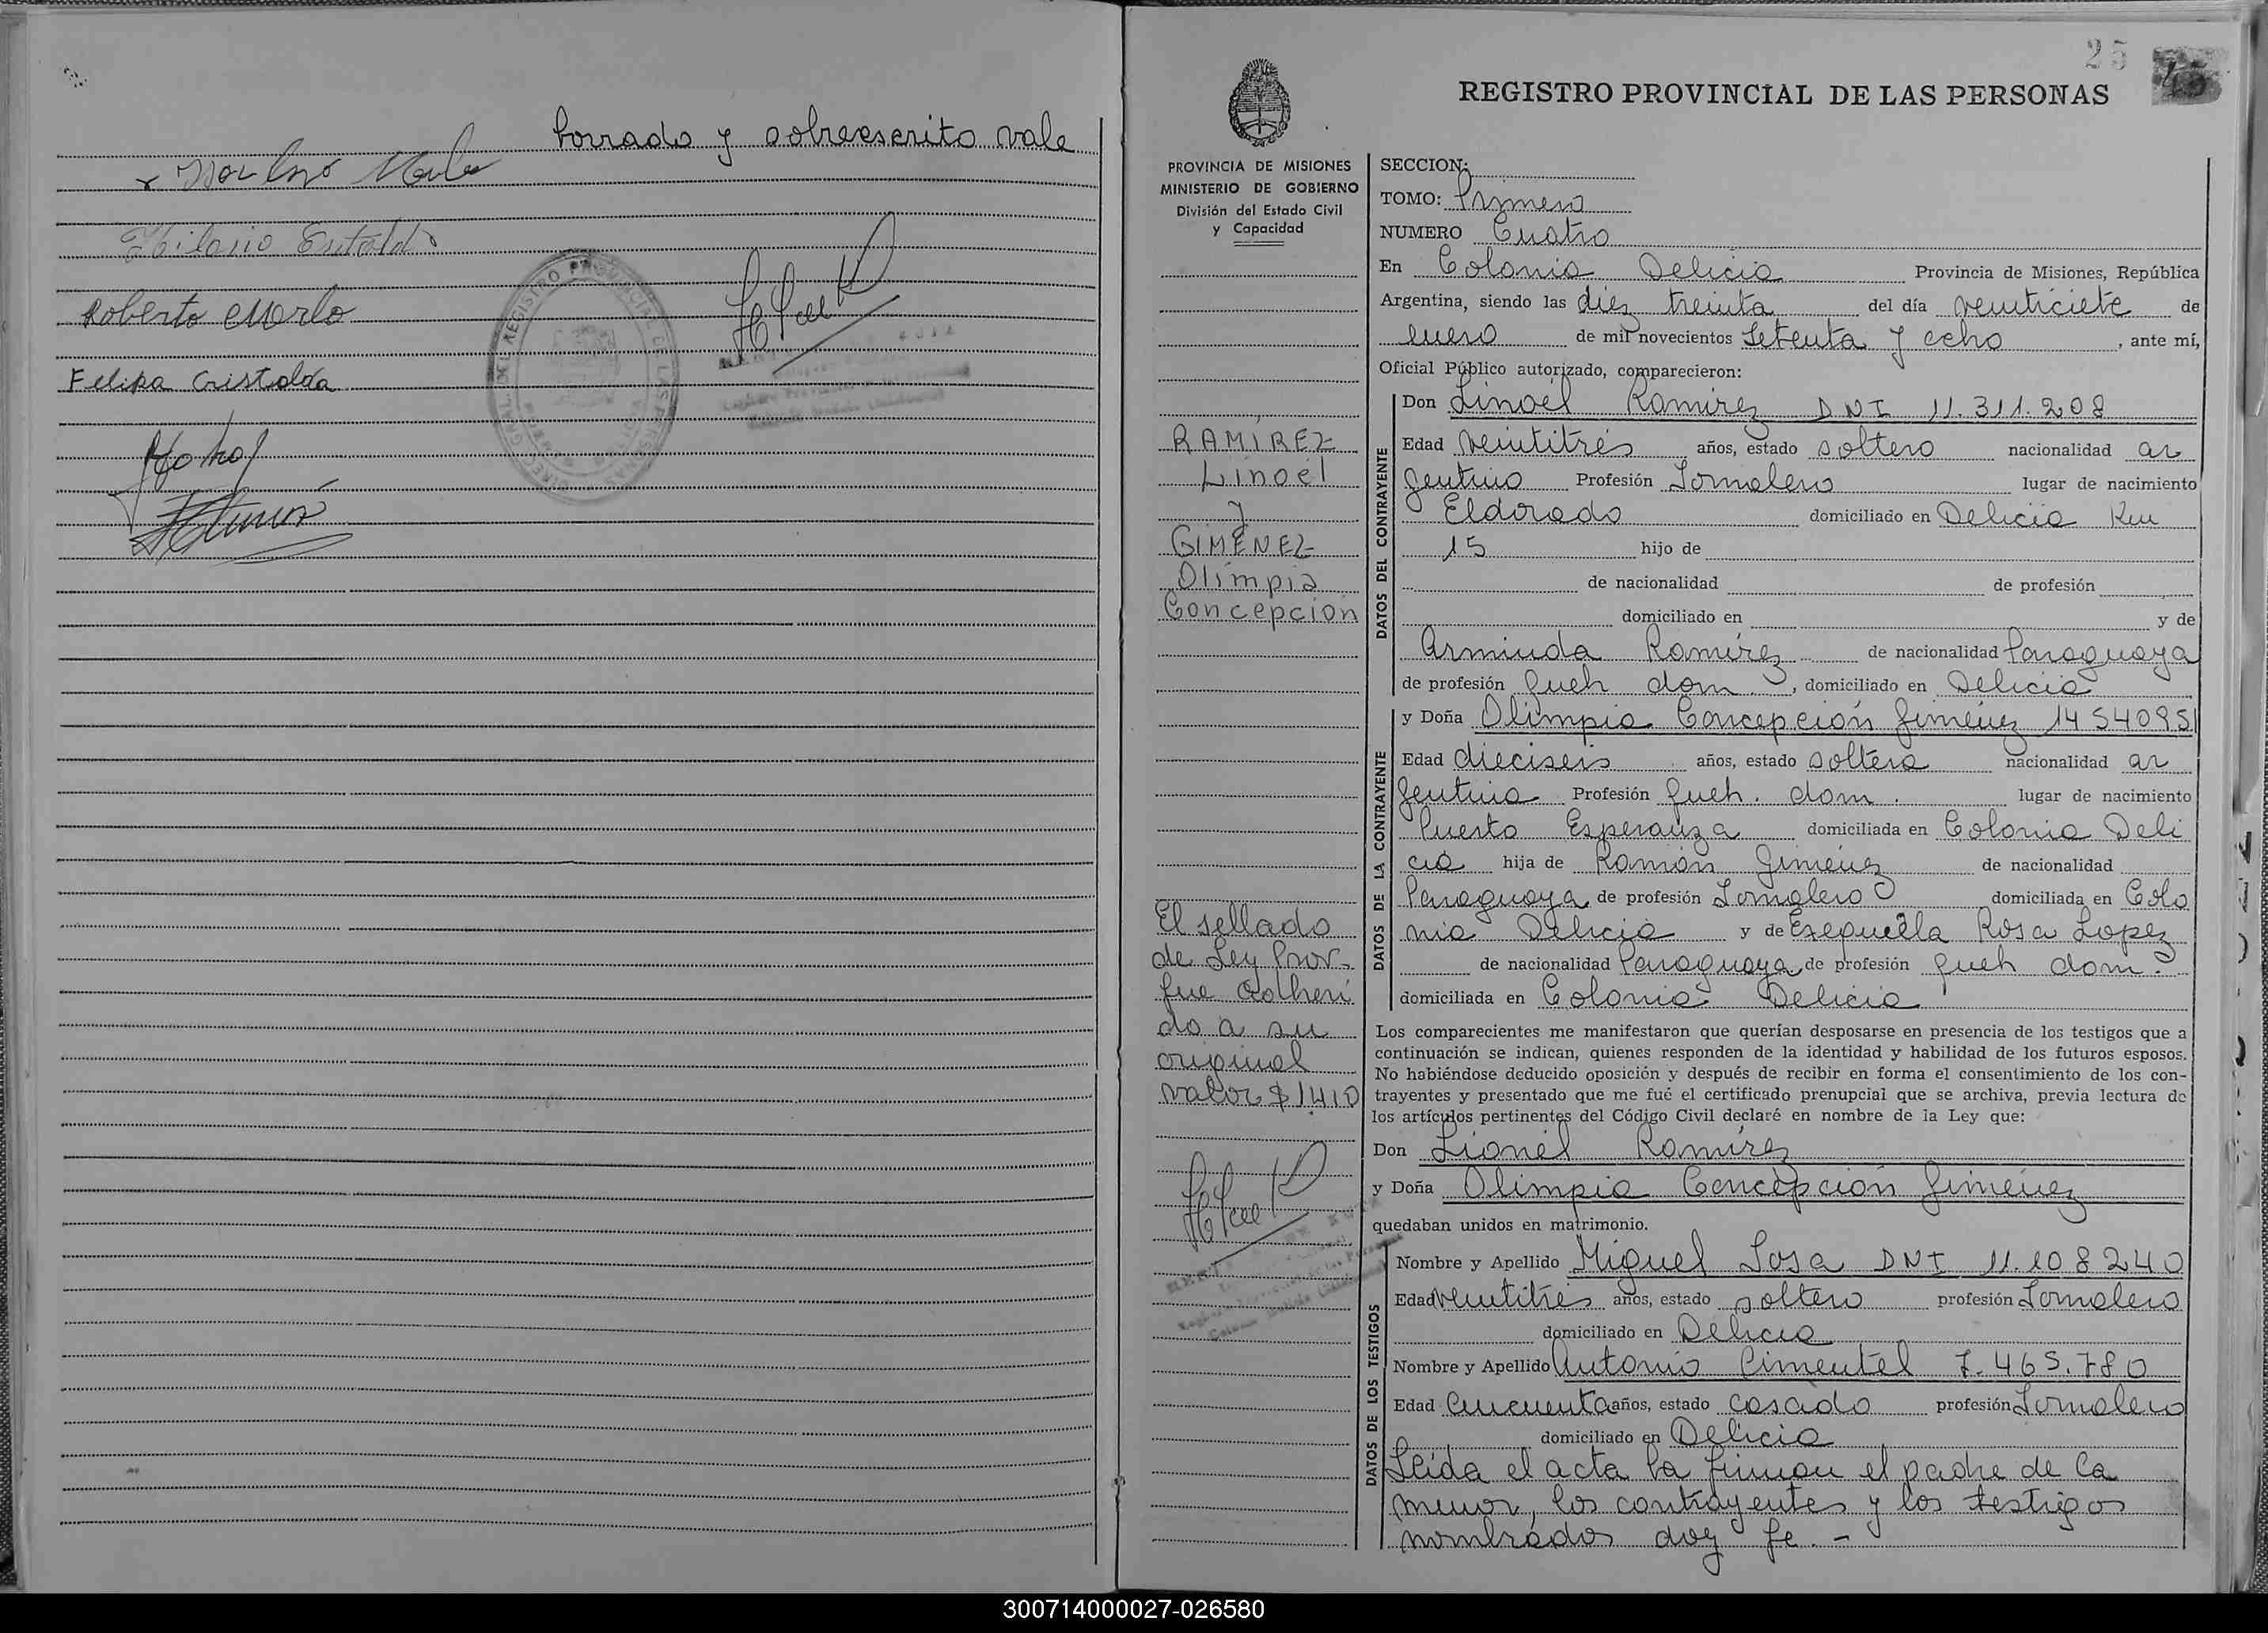 borrado y sobreescrito vale
Roberto Merlo
Felipa Cristalda
25
REGISTRO PROVINCIAL DE LAS PERSONAS
PROVINCIA DE MISIONES
MINISTERIO DE GOBIERNO
División del Estado Civil
y Capacidad
RAMÍREZ
Linoel
y
GIMENEZ
Olimpia
Concepción
El sellado
de Ley Prov.
fue adheri
do a su
original
valor $ 1410
SECCION:
TOMO: Primero
NUMERO Cuatro
En Colonia Delicia Provincia de Misiones, República
Argentina, siendo las diez treinta del día veinticiete de
enero de mil novecientos Setenta y ocho, ante mí,
Oficial Público autorizado, comparecieron:
DATOS DEL CONTRAYENTE
Don Linoel Ramírez DNI 11.311.208
Edad veintitrés años, estado soltero nacionalidad ar
gentino Profesión Jornalero lugar de nacimiento
Eldorado domiciliado en Delicia Km
15 hijo de
de nacionalidad de profesión
domiciliado en y de
Arminda Ramírez de nacionalidad Paraguaya
de profesión Queh dom., domiciliado en Delicia
DATOS DE LA CONTRAYENTE
y Doña Olimpia Concepción Giménez 14540951
Edad dieciseis años, estado soltera nacionalidad ar
gentina Profesión Queh. dom. lugar de nacimiento
Puerto Esperanza domiciliada en Colonia Deli
cia hija de Ramón Gimenez de nacionalidad
Paraguaya de profesión Jornalero domiciliada en Colo
nia Delicia y de Exequiela Rosa Lopez
de nacionalidad Paraguaya de profesión Queh dom.
domiciliada en Colonia Delicia
Los comparecientes me manifestaron que querían desposarse en presencia de los testigos que a
continuación se indican, quienes responden de la identidad y habilidad de los futuros esposos.
No habiéndose deducido oposición y después de recibir en forma el consentimiento de los con-
trayentes y presentado que me fué el certificado prenupcial que se archiva, previa lectura de
los artículos pertinentes del Código Civil declaré en nombre de la Ley que:
Don Lionel Ramírez
y Doña Olimpia Concepción Giménez
quedaban unidos en matrimonio.
DATOS DE LOS TESTIGOS
Nombre y Apellido Miguel Sosa DNI 11.108240
Edad veintitrés años, estado soltero profesión Jornalero
domiciliado en Delicia
Nombre y Apellido Antonio Pimentel 7.465.780
Edad Cincuenta años, estado casado profesión Jornalero
domiciliado en Delicia
Leída el acta la firman el padre de la
menor, los contrayentes y los testigos
nombrados doy fe.-
300714000027-026580